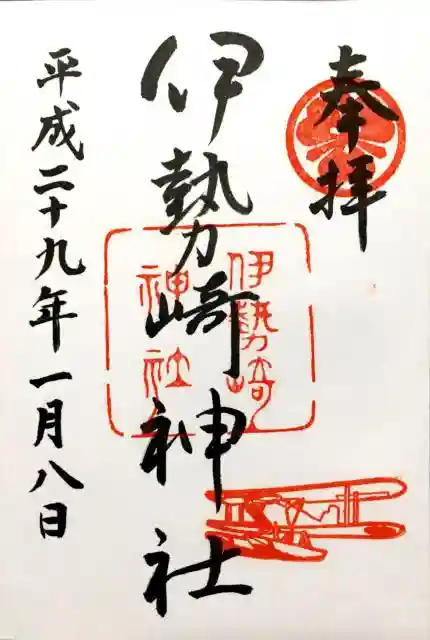 奉拝
伊勢崎神社
伊勢崎
神社
平成二十九年一月八日